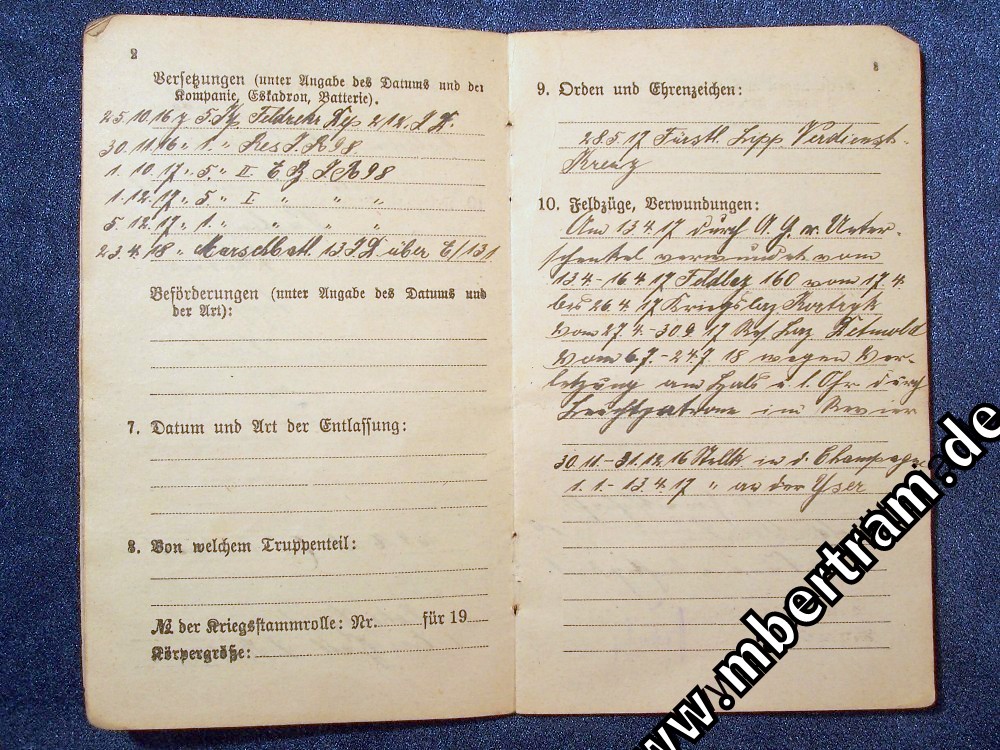 2
Versetzungen (unter Angabe des Datums und der
Kompanie, Eskadron, Batterie).
25.10.16 z. 5. Kp Feldrekr Dep 2/12. I. D.
30.11.16 " 1. " Res I. R 98
1. 10. 17 " 5. " II. E B I. R 98
1. 12. 17 " 5 " I " " "
5. 12. 17 " 1. " " " "
23. 4. 18 " Marschbatl. 13 I D über E/131
Beförderungen (unter Angabe des Datums und
der Art):
7. Datum und Art der Entlassung:
8. Von welchem Truppenteil:
№ der Kriegsstammrolle: Nr. für 19
Körpergröße:
3
9. Orden und Ehrenzeichen:
28.5.17 Fürstl. Lipp Verdienst-
Kreuz
10. Feldzüge, Verwundungen:
Am 13.4.17 durch A. G. r. Unter-
schenkel verwundet vom
13.4.-16.4.17 Feldlaz 160 vom 17.4.
bis 26.4.17 Kriegslaz
Vom 27.4.-30.9.17 Res. Laz Detmold
Vom 6.7.-24.7.18 wegen Ver-
letzung am Hals u. l. Ohr durch
Leuchtpatrone im Revier
30.11.-31.12.16 Stellk. in d. Champagne
1.1.-13.4.17 " an der Yser
www.mbertram.de